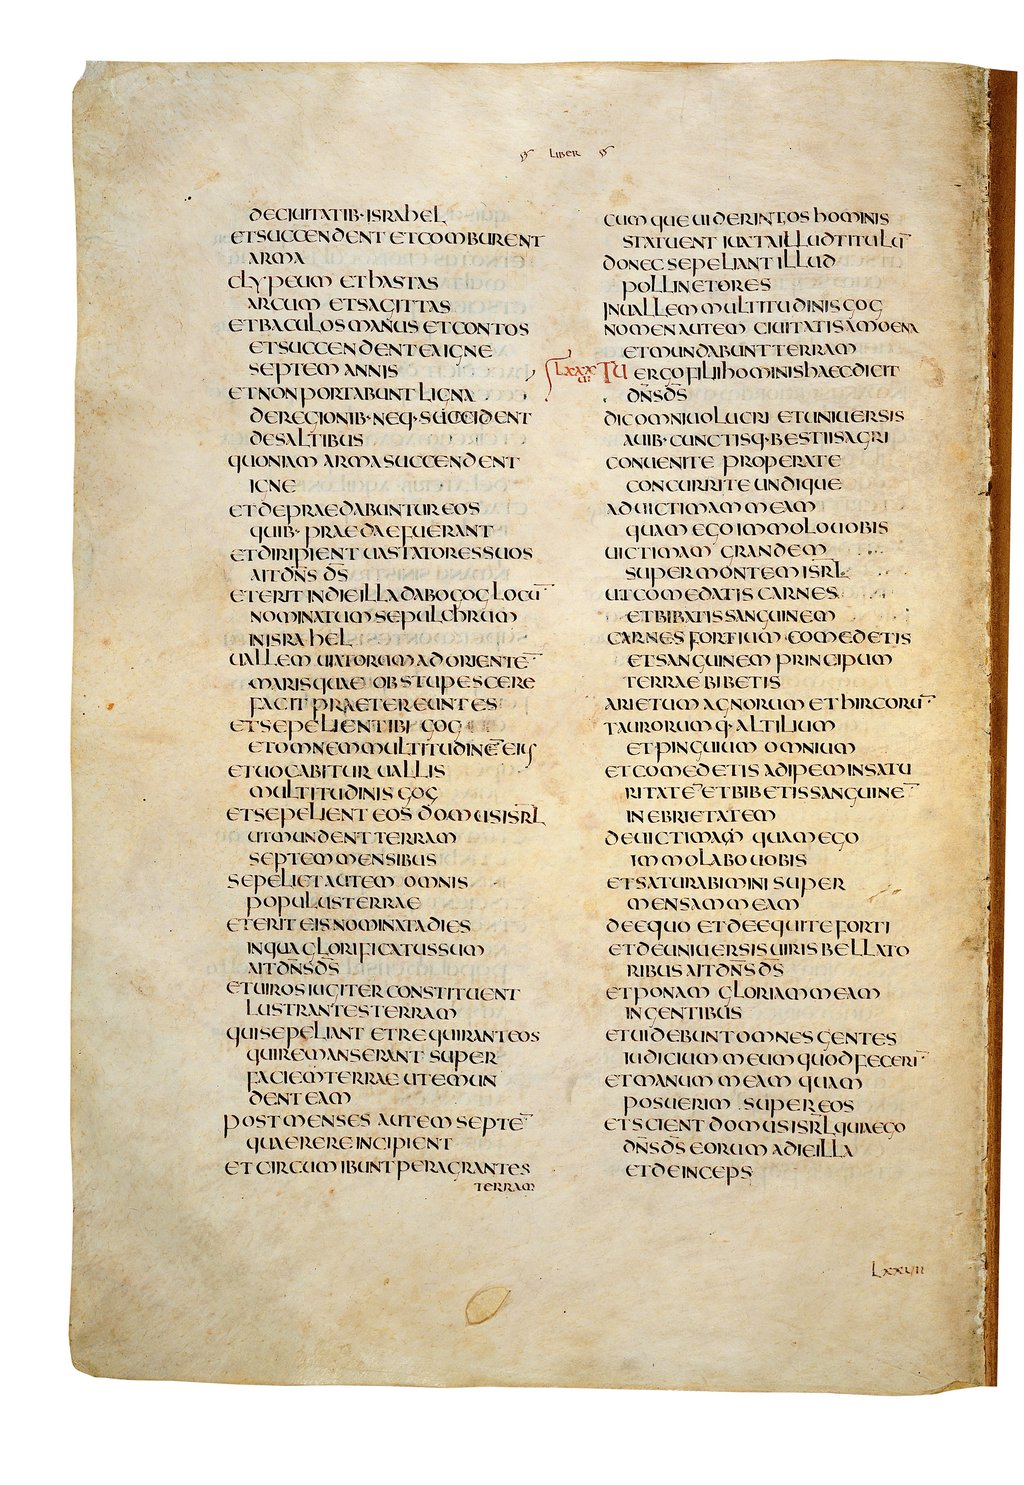 LIBER
DECIUITATIB·ISRAHEL
ETSUCCENDENT ETCOMBURENT
ARMA
CLYPEUM ETHASTAS
ARCUM ETSAGITTAS
ETBACULOS MANUS ETCONTOS
ETSUCCENDENTEA IGNE
SEPTEM ANNIS
ETNON PORTABUNT LIGNA
DEREGIONIB·NEQ·SUCCIDENT
DESALTIBUS
QUONIAM ARMASUCCENDENT
IGNE
ETDEPRAEDABUNTUR EOS
QUIB· PRAEDAEFUERANT
ETDIRIPIENT UASTATORESSUOS
AIT DN̄S D̄S
ETERIT INDIEILLADABOGOG LOCŪ
NOMINATUM SEPULCHRUM
INISRAHEL
UALLEM UIATORUMADORIENTĒ
MARISQUAE OBSTUPESCERE
FACIT PRAETEREUNTES
ETSEPELIENTIBI GOG
ETOMNEMMULTITUDINĒ EIUS
ETUOCABITUR UALLIS
MULTITUDINIS GOG
ETSEPELIENT EOS DOMUSISRL̄
UTMUNDENT TERRAM
SEPTEM MENSIBUS
SEPELIETAUTEM OMNIS
POPULUSTERRAE
ETERIT EISNOMINATADIES
INQUA GLORIFICATUSSUM
AITDN̄SD̄S
ETUIROS IUGITER CONSTITUENT
LUSTRANTESTERRAM
QUISEPELIANT ETREQUIRANTEOS
QUIREMANSERANT SUPER
FACIEMTERRAE UTEMUN
DENT EAM
POST MENSES AUTEM SEPTĒ
QUAERERE INCIPIENT
ET CIRCUMIBUNT PERAGRANTES
TERRAM
CUMQUEUIDERINT OS HOMINIS
STATUENT IUXTAILLUDTITULŪ
DONEC SEPELIANT ILLUD
POLLINCTORES
INUALLEMMULTITUDINIS GOG
NOMENAUTEM CIUITATISAMOENA
ETMUNDABUNTTERRAM
LXXXUI TU ERGOFILIHOMINISHAECDICIT
DN̄SD̄S
DICOMNIUOLUCRI ETUNIUERSIS
AUIB·CUNCTISQ·BESTIISAGRI
CONUENITE PROPERATE
CONCURRITE UNDIQUE
ADUICTIMAM MEAM
QUAM EGOIMMOLOUOBIS
UICTIMAM GRANDEM
SUPERMONTEMISRL̄
UTCOMEDATIS CARNES
ETBIBATISSANGUINEM
CARNES FORTIUM COMEDETIS
ETSANGUINEM PRINCIPUM
TERRAE BIBETIS
ARIETUM AGNORUM ETHIRCORŪ
TAURORUMQ·ALTILIUM
ETPINGUIUM OMNIUM
ETCOMEDETIS ADIPEMINSATU
RITATĒ ETBIBETISSANGUINĒ
INEBRIETATEM
DEUICTIMAM QUAMEGO
IMMOLABOUOBIS
ETSATURABIMINI SUPER
MENSAMMEAM
DEEQUO ETDEEQUITEFORTI
ETDEUNIUERSISUIRIS BELLATO
RIBUS AITDN̄SD̄S
ETPONAM GLORIAMMEAM
INGENTIBUS
ETUIDEBUNTOMNES GENTES
IUDICIUM MEUMQUODFECERĪ
ETMANUM MEAM QUAM
POSUERIM SUPEREOS
ETSCIENT DOMUSISRL̄QUIAEGO
DN̄SD̄S EORUM ADIEILLA
ETDEINCEPS
LXXUII